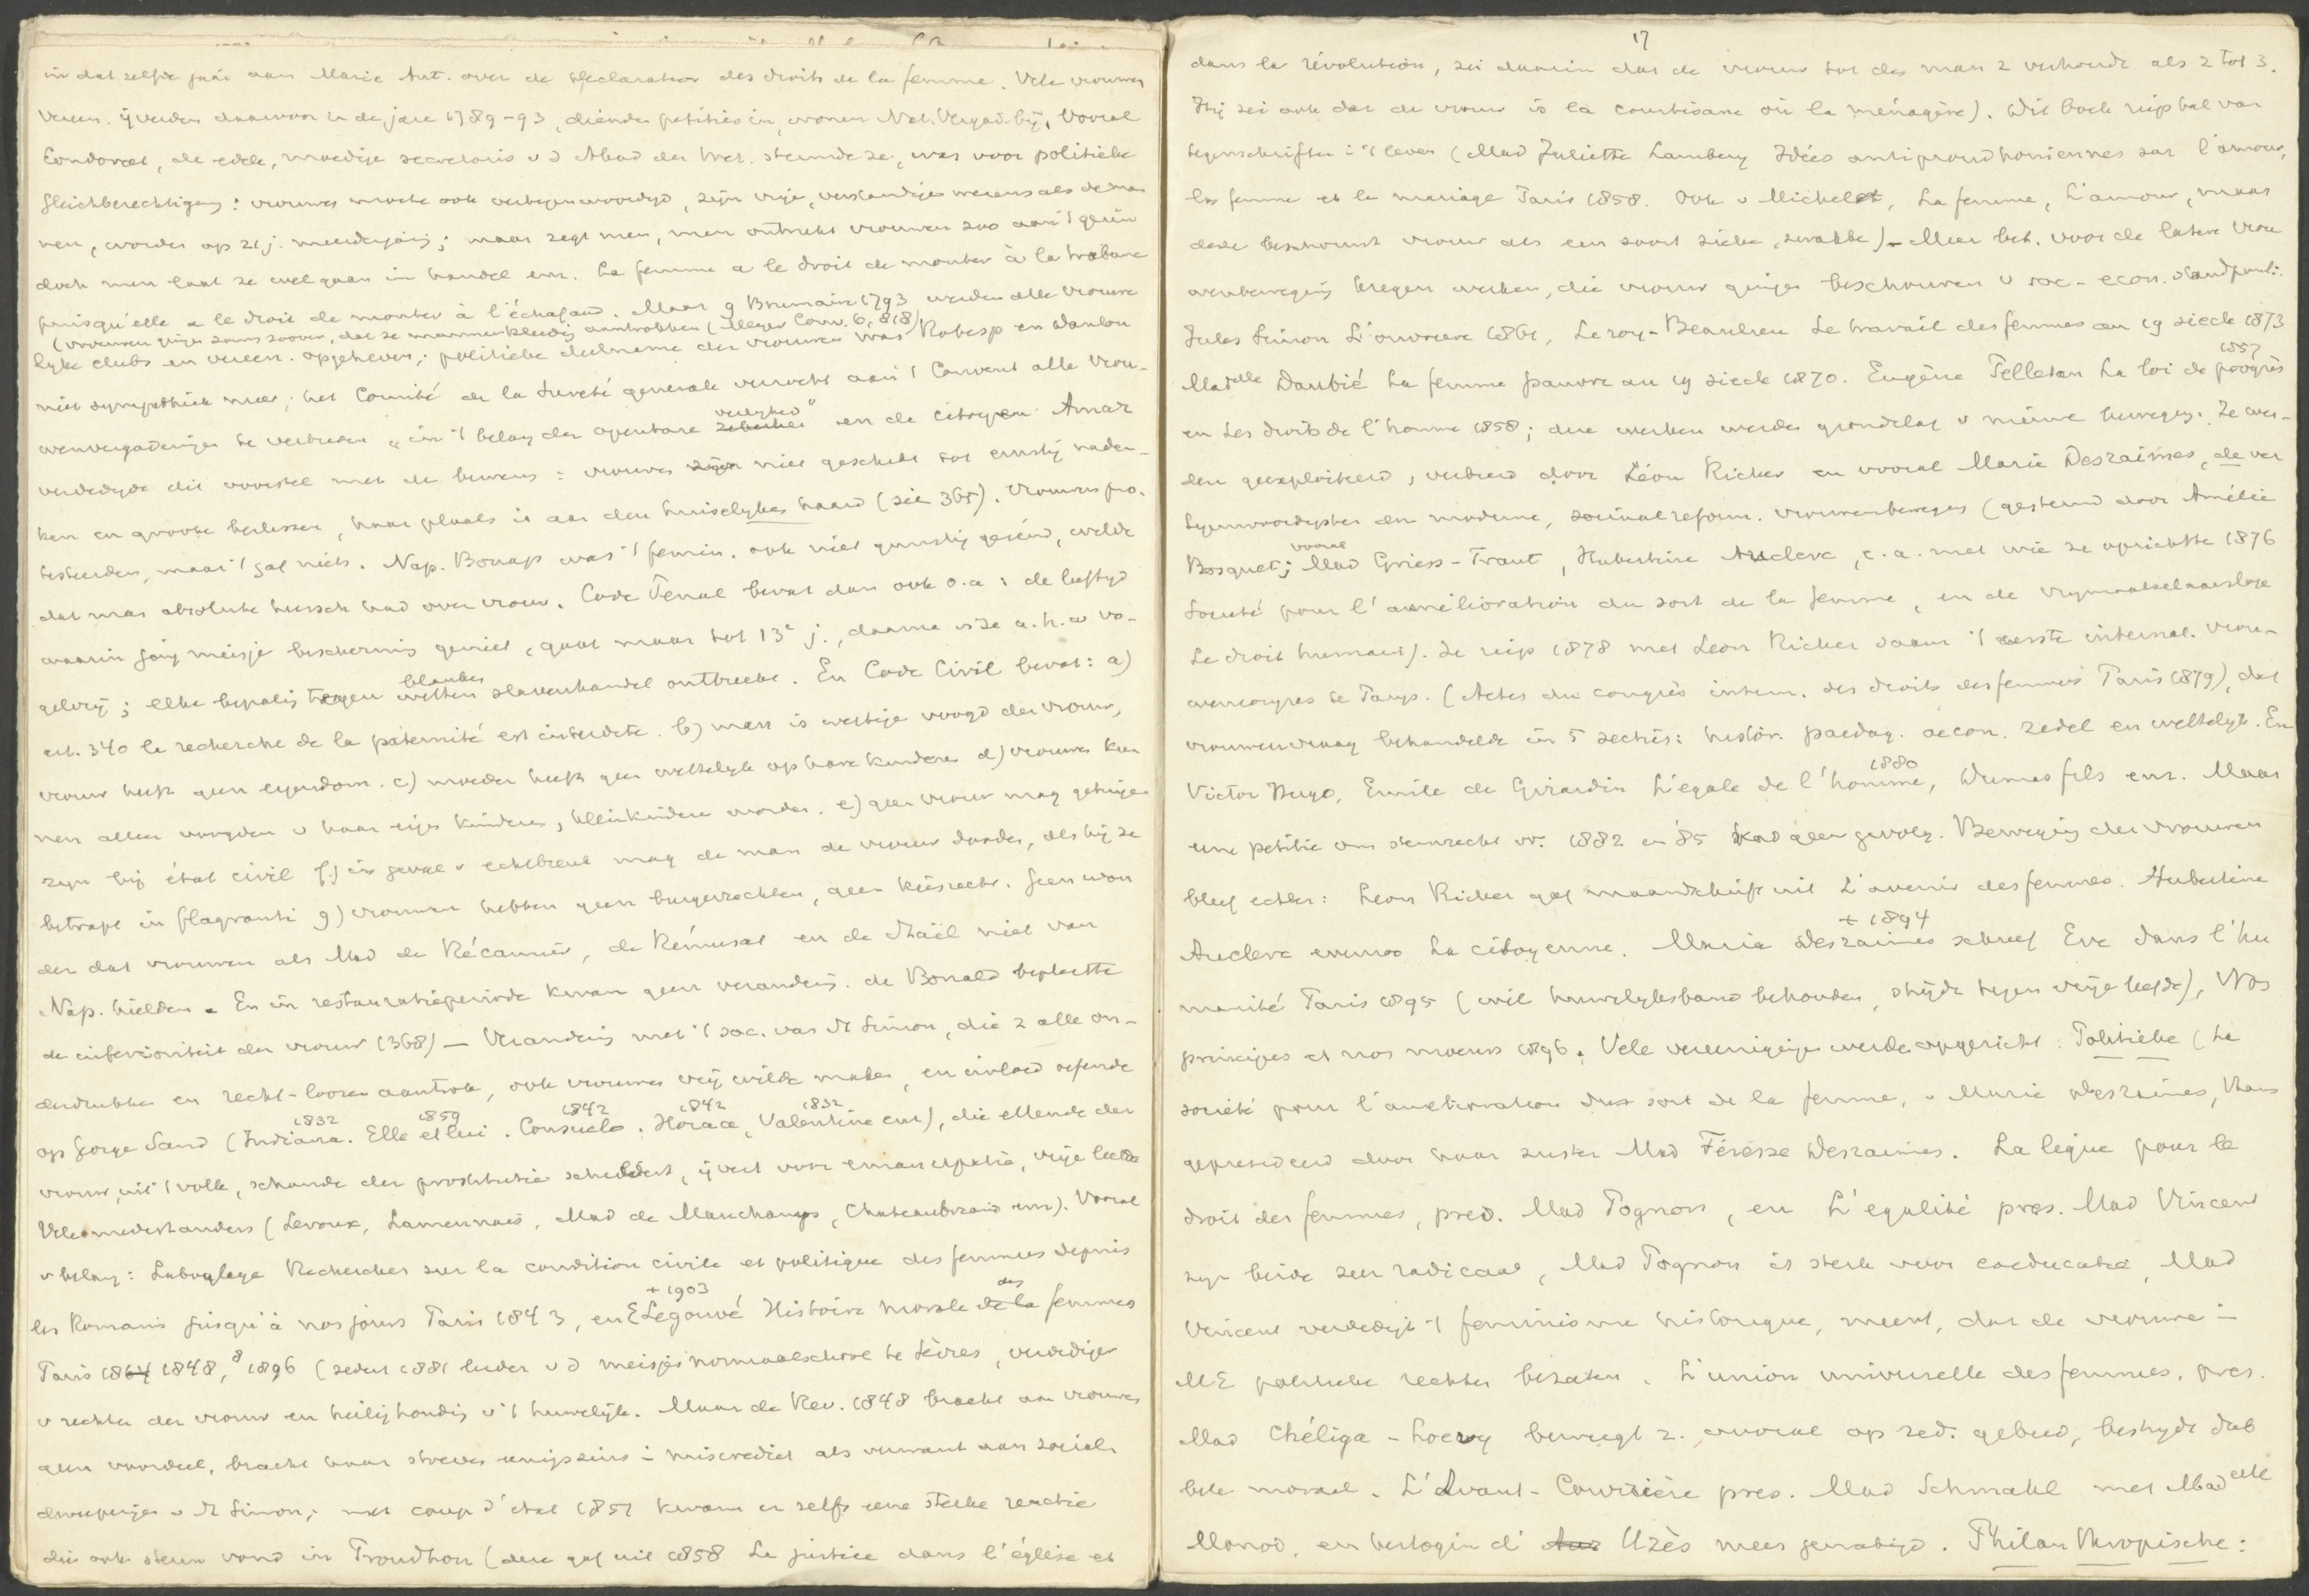 in datzelfde jaar aan Marie Ant. over de Declaration des droits de la femme. Vele vrouwen
vereen. ijverden daarvoor in de jare 1789-93, dienden petities in, wonen Nat. Vergad. bij. Vooral
Condorcet, de edele, moedige secretaris v d Akad der Wet. steunde ze, was voor politieke
gleichberechtigung: vrouwen moeten ook vertegenwoordigd, zijn vrije, verstandige wezens als de man
nen, worden op 21 j. meerderjarig; maar zegt men, men onttrekt vrouwen zoo aan 't gezin
doch men laat ze wel gaan in handel enz. La femme a le droit de monter à la tribune
puisqu'elle a le droit de monter à l'échafaud. Maar 9 Brumaire 1793 werden alle vrouwe
(vrouwen gingen soms zoover, dat ze mannenkleedij aantrokken (Meyer Conv. 6, 818)
lyke clubs en vereen. opgeheven; politieke deelname der vrouwen was Robesp en Danton
niet sympathiek meer; het Comité de la sureté generale verzocht aan 't Convent alle vrou-
wenvergaderingen te verbieden „in 't belang der openbare veiligheid" en de citoyen Amar
verdedigde dit voorstel met de bewering: vrouwen zijn niet geschikt tot ernstig naden-
ken en groote besluiten, haar plaats is aan den huiselyken haard (zie 365). Vrouwen pro-
testeerden, maar 't gaf niets. Nap. Bonap was 't femin. ook niet gunstig gezind, wilde
dat man absolute heersch had over vrouw. Code Penal bevat dan ook o.a: de leeftyd
waarin jong meisje bescherming geniet, gaat maar tot 13e j., daarna is ze a.h.w vo-
gelvrij; elke bepaling tegen blanken slavenhandel ontbreekt. En Code Civil bevat: a)
art. 340 la recherche de la paternité est interdite. b) man is wettige voogd der vrouw,
vrouw heeft geen eigendom. c) moeder heeft geen wettelyk op hare kinderen d) vrouwen kun
nen alleen voogden v haar eigen kinderen, kleinkinderen worden. e) geen vrouw mag getuige
zyn bij état civil f.) in geval v echtbreuk mag de man de vrouw dooden, als hij ze
betrapt in flagranti g) vrouwen hebben geen burgerrechten, geen kiesrecht. Geen won
der dat vrouwen als Mad de Récamier, de Rémusat en de Staël niet van
Nap. hielden. En in restauratieperiode kwam geen verandering. de Bonald bepleitte
de inferioriteit der vrouw (368) — Verandering met 't soc. van St Simon, die z alle on-
derdrukten en recht-loozen aantrok, ook vrouwen vrij wilde maken, en invloed oefende
op George Sand (Indiana 1832. Elle et lui 1859. Consuelo 1842. Horace 1842, Valentine 1832 enz), die ellende der
vrouw, uit 't volk, schande der prostitutie schildert, ijvert voor emancipatie, vrije liefde
Vele medestanders (Leroux, Lamennais, Mad de Mauchamps, Chateaubriand enz). Vooral
v belang: Laboulaye Recherches sur la condition civile et politique des femmes depuis
les Romains jusqu'à nos jours Paris 1843, en E Legouvé + 1903 Histoire morale des femmes
Paris 1864 1848, 8 1896 (sedert 1881 leider v d meisjesnormaalschool te Sèvres, verdediger
v rechten der vrouw en heilighouding v 't huwelijk. Maar de Rev. 1848 bracht aan vrouwen
geen voordeel, bracht haar streven enigszins in miscrediet als verwant aan social.
dweperijen v St Simon; met coup d'état 1851 kwam er zelfs eene sterke reactie
die ook steun vond in Proudhon (deze gaf uit 1858 La justice dans l'église et
17
dans la révolution, zei daarin dat de vrouw tot den man z verhoudt als 2 tot 3.
Hij zei ook dat de vrouw is la courtisane où la ménagère). Dit boek riep tal van
tegenschriften in 't leven (Mad Juliette Lambery Idées antiproudhoniennes sur l'amour,
la femme et le mariage Paris 1858. Ook v Michelet, La femme, L'amour, maar
deze beschouwt vrouw als een soort zieke, zwakke) — Meer bet. voor de latere vrou
wenbeweging kregen werken, die vrouw gingen beschouwen v soc-econ. standpunt:
Jules Simon L'ouvriere 1861, Leroy-Beaulieu Le travail des femmes au 19 siecle 1873
Madelle Daubié La femme pauvre au 19 siecle 1870. Eugène Pelletan La loi de progrès 1857
en Les droits de l'homme 1858; deze werken werden grondslag v nieuwe beweging. Ze wer-
den geexploiteerd, verbreid door Léon Richer en vooral Maria Desraimes, de ver
tegenwoordigster der moderne, sociaalreform. vrouwenbeweging (gesteund door Amélie
Bosquet; vooral Mad Griess-Traut, Hubertine Auclerc, e.a. met wie ze oprichtte 1876
Société pour l'amélioration du sort de la femme, en de vrymaatselaarsloge
Le droit humain). Ze riep 1878 met Leon Richer saam 't eerste internat. vrou-
wencongres te Parys. (Actes du congrès intern. des droits des femmes Paris 1879), dat
vrouwenvraag behandelde in 5 secties: histor. paedag. oecon. zedel en wettelyk. En
Victor Hugo, Emile de Girardin L'égale de l'homme 1880, Dumas fils enz. Maar
eene petitie om stemrecht vr. 1882 en 85 had geen gevolg. Beweging der vrouwen
bleef echter: Leon Richer gaf maandschrift uit L'avenir des femmes. Hubertine
Auclerc evenzoo La citoyenne. Maria Desraimes + 1894 schreef Eve dans l'hu
manité Paris 1895 (wil huwelyksband behouden, strijdt tegen vrije liefde), Nos
principes et nos moeurs 1896. Vele vereenigingen werden opgericht: Politieke (La
société pour l'amelioration du sort de la femme, v Maria Desraimes, thans
gepresideerd door haar zuster Mad Férésse Desraimes. La ligue pour le
droit des femmes, pres. Mad Pognon, en L'égalité pres. Mad Vincent
zyn beide zeer radicaal, Mad Pognon is sterk voor coeducatie, Mad
Vincent verdedigt 't feminisme historique, meent, dat de vrouwe in
ME politieke rechten bezaten. L'union universelle des femmes, pres.
Mad Chéliga-Loevy beweegt z. vooral op zed. gebied, bestrydt dub
bele moraal. L'Avant-Courrière pres. Mad Schmahl met Madelle
Monod, en hertogin d' Uzès meer gematigd. Philanthropische: